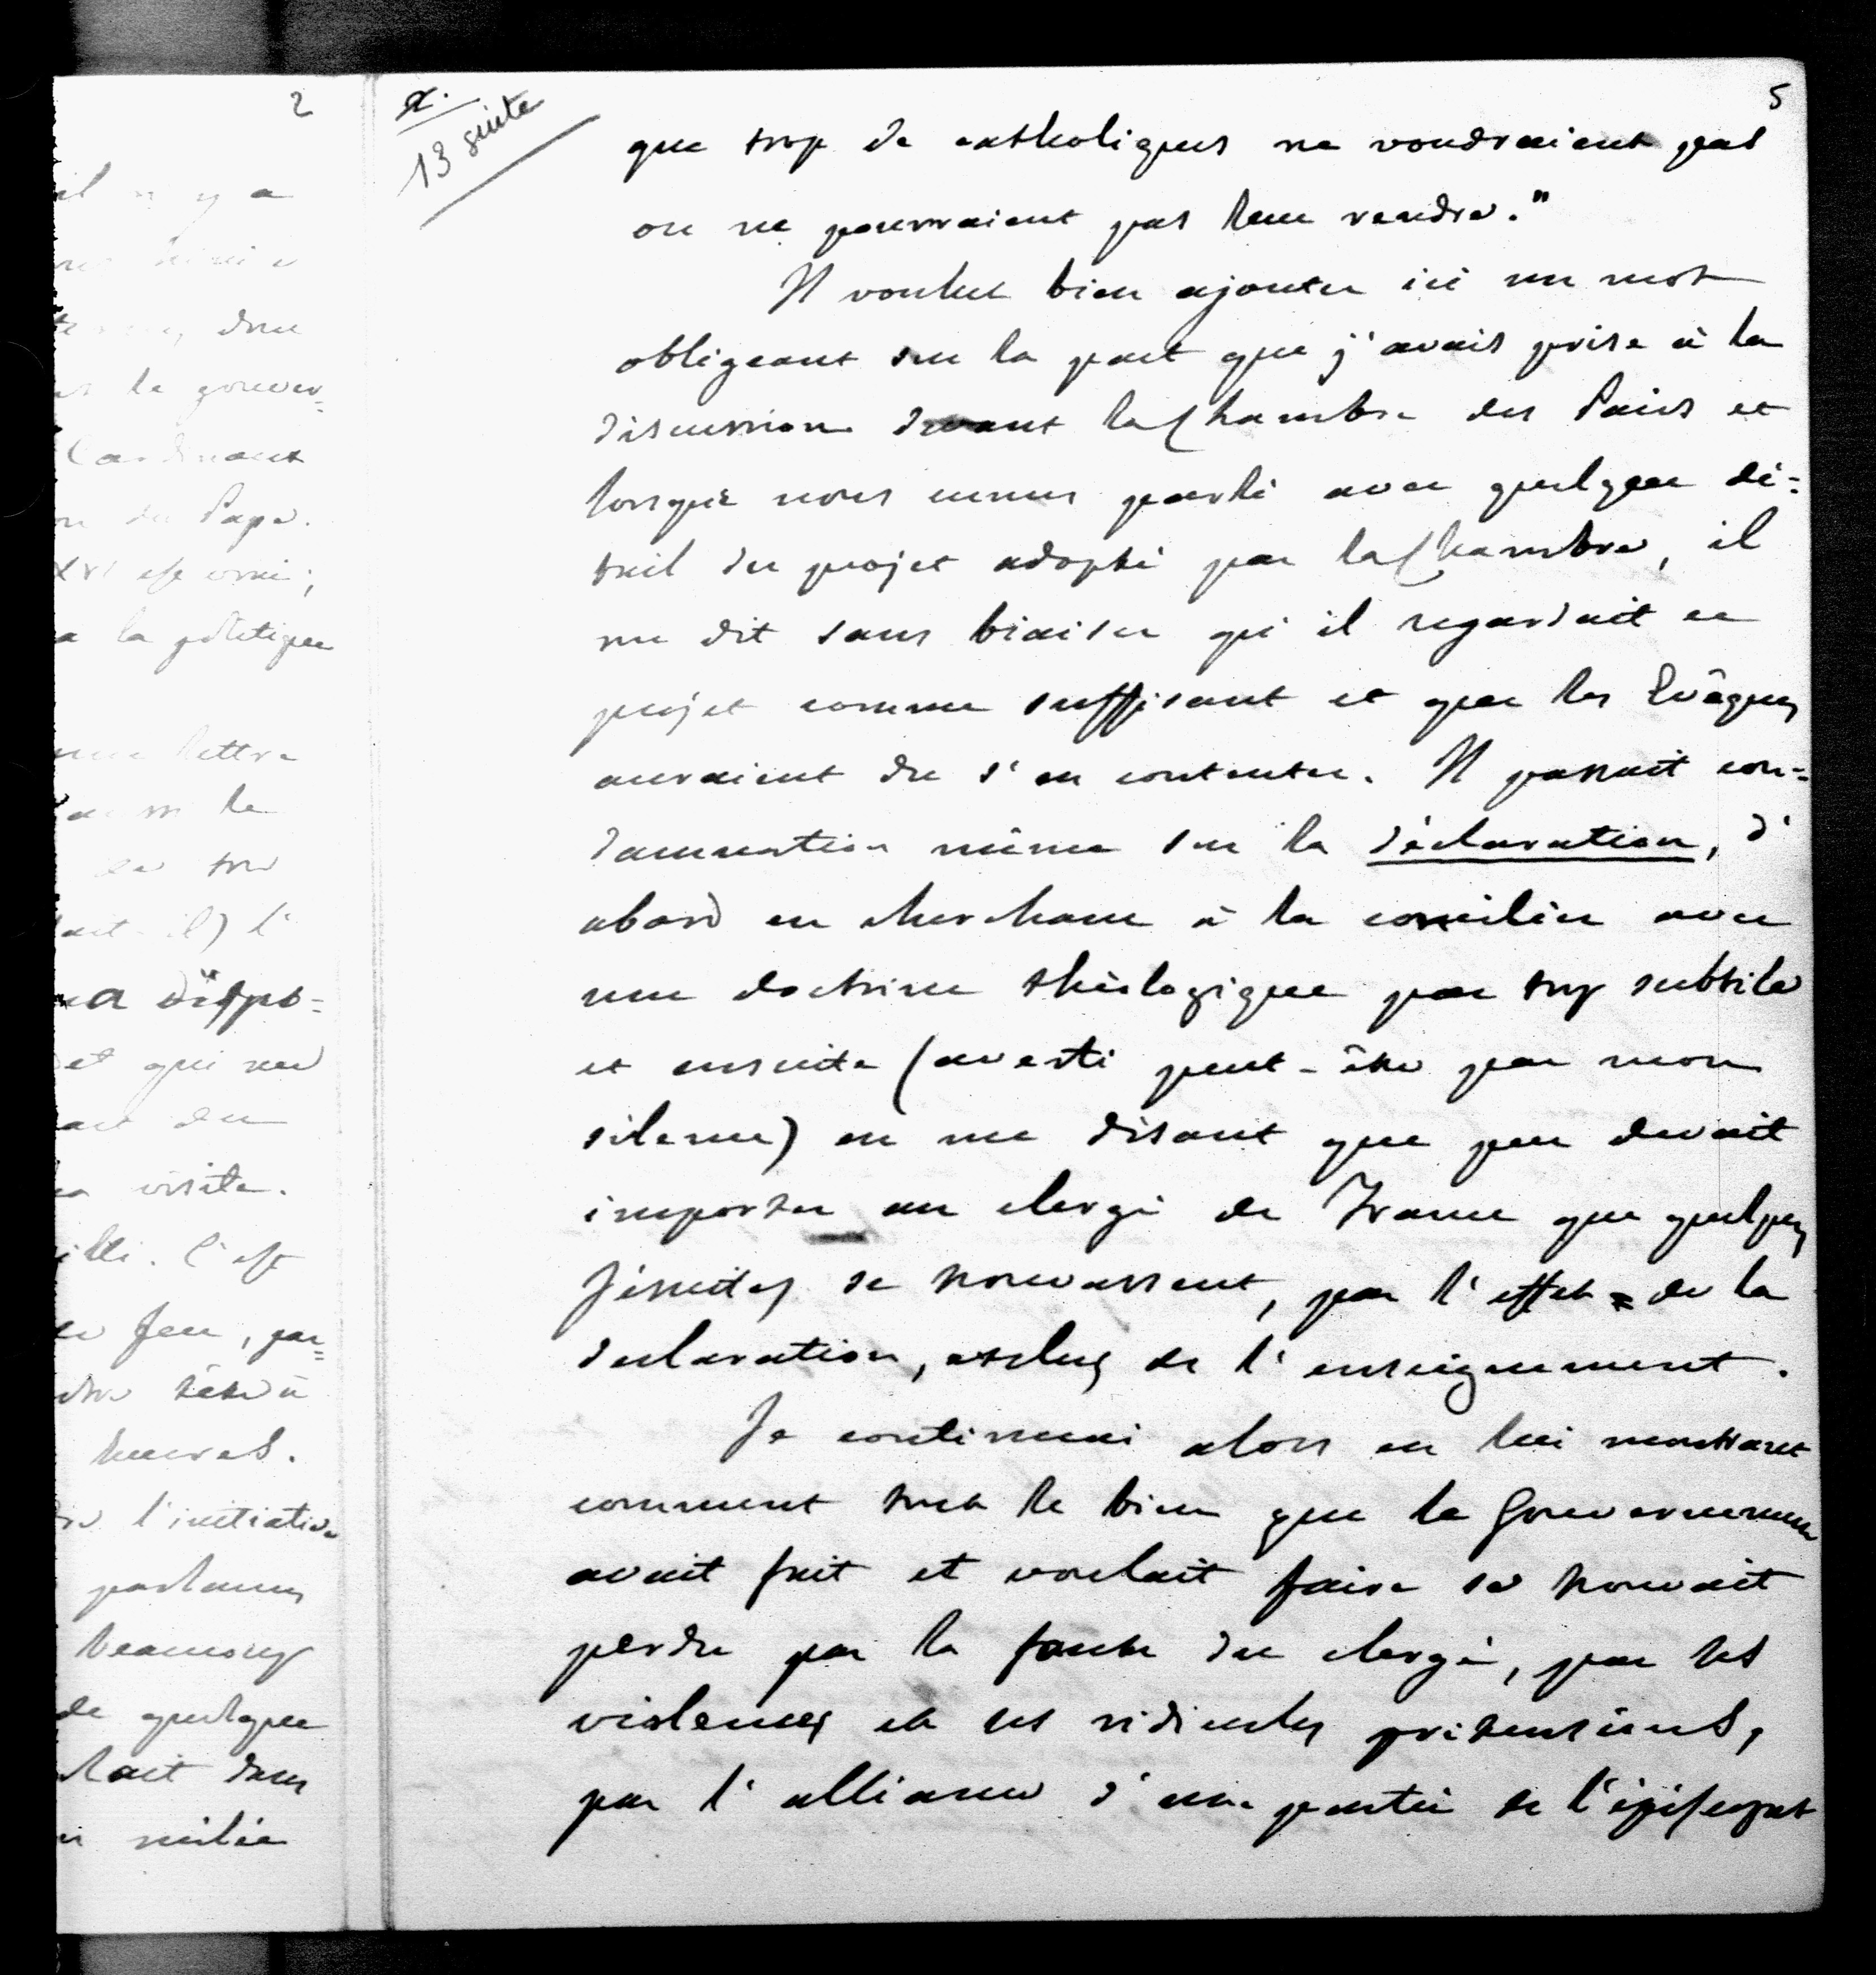 2
il n'y a
donc
la gouver=
Cardinaux
du Pape.
XVI est vrai;
a la politique
une lettre
la
son
ait-il) l'
a dispo=
et qui ne
visite.
C'est
feu, par=
tête à
heures.
l'initiative
parlames
beaucoup
de quelque
lait dans
milieu
x.
13 suite
5
que trop de catholiques ne voudraient pas
ou ne pourraient pas leur rendre."
Il voulut bien ajouter ici un mot
obligeant sur la part que j'avais prise à la
discussion devant la Chambre des Pairs et
lorsque nous eumes parlé avec quelque dé=
tail du projet adopté par la Chambre, il
me dit sans biaiser qu'il regardait ce
projet comme suffisant et que les Evêques
auraient du s'en contenter. Il passait con=
damnation même sur la déclaration, d'
abord en cherchant à la concilier avec
une doctrine théologique par trop subtile
et ensuite (averti peut-être par mon
silence) en me disant que peu devait
importer au clergé de France que quelques
Jésuites se trouvassent, par l'effet de la
declaration, exclus de l'enseignement.
Je continuai alors en lui montrant
comment tout le bien que le Gouvernement
avait fait et voulait faire se trouvait
perdu par la faute du clergé, par ses
violences et ses ridicules prétensions,
par l'alliance d'une partie de l'épiscopat